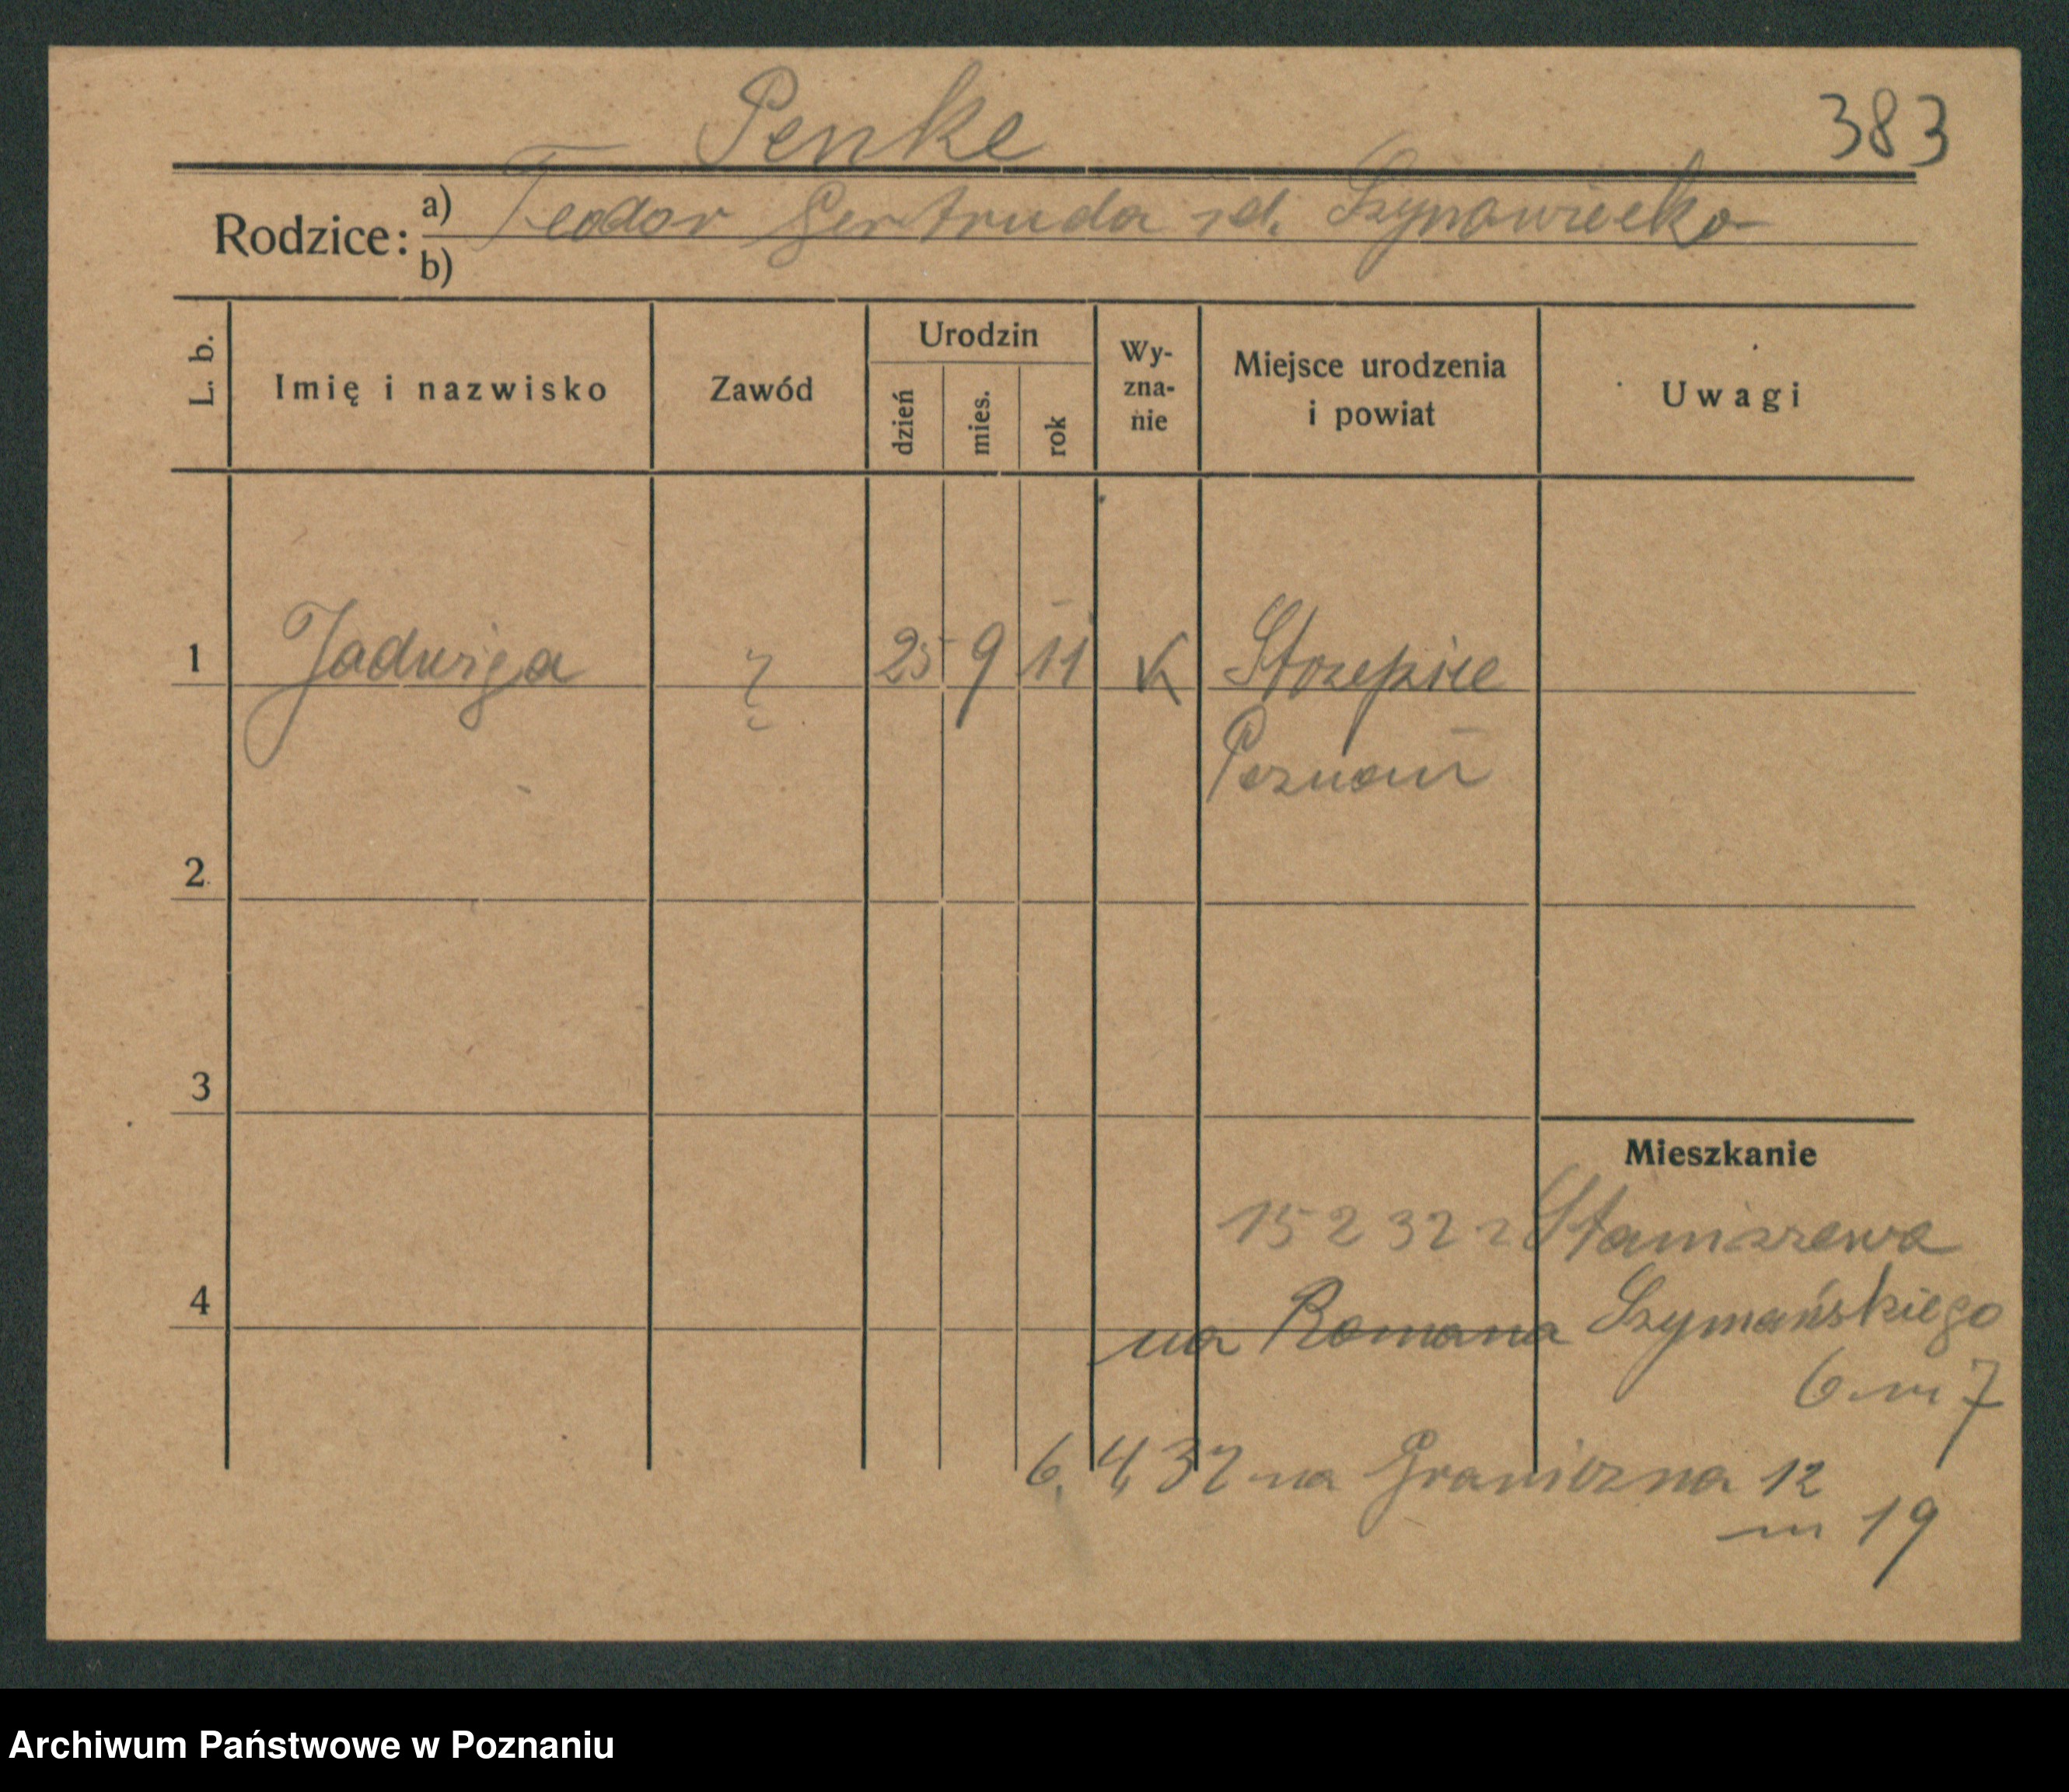 Penke
383
Rodzice: a) Teodor Gertruda zd.
b)
L. b.
Imię i nazwisko
Zawód
Urodzin
dzień
mies.
rok
Wy-
zna-
nie
Miejsce urodzenia
i powiat
Uwagi
1 Jadwiga 25 9 11 K
Poznań
2
3
Mieszkanie
15 2 32 z Staniszewa
4
na Romana Szymańskiego
6 m 7
6. 4 32 na Graniczna 12
m 19
Archiwum Państwowe w Poznaniu